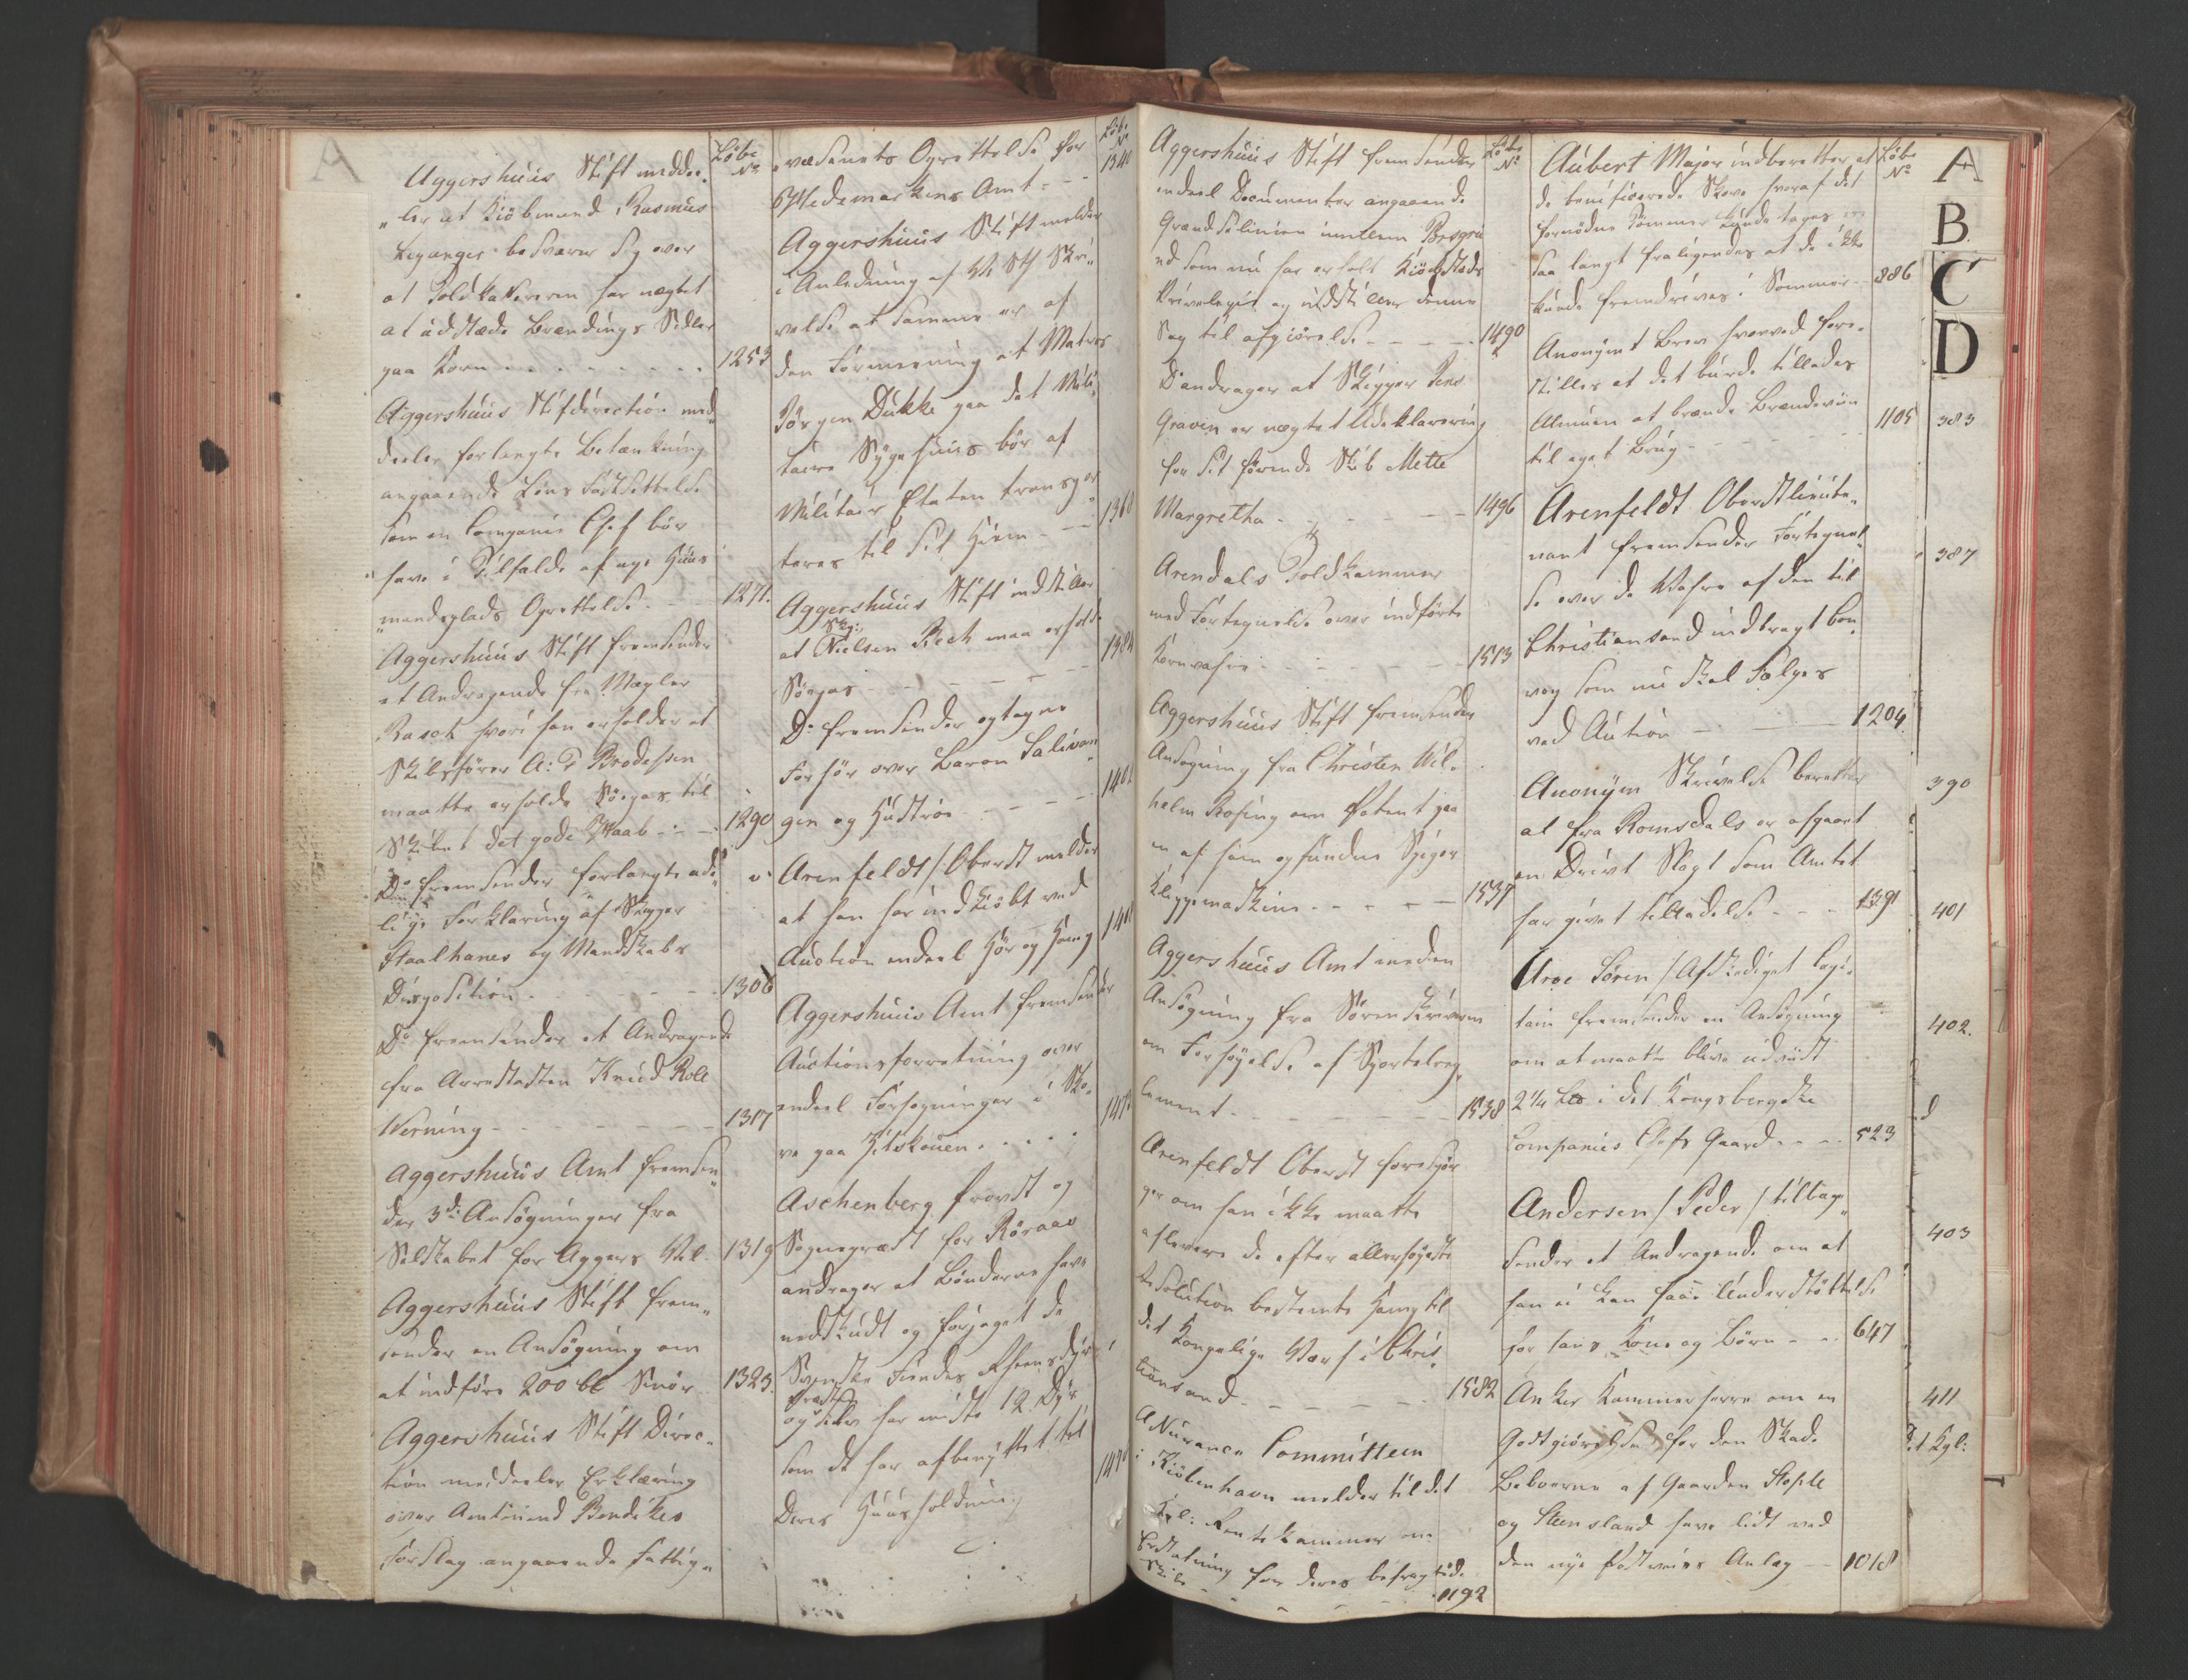 A
Löbe
No
Aggershuus Stift medde„
„ler at Kiöbmand Rasmus
Leganger besværer sig over
at Toldkassereren har nægtet
at udstæde Brændings Sedler
paa Korn 1253
Aggershuus Stifdirection med„
deeler forlangte Betænkning
angaaende Löns Fastsettelse
som en Compagnie Chef bör
have i Tilfælde af nye Huus
„mandsplads Oprettelse 1271.
Aggershuus Stift fremsender
et Andragende fra Mægler
Rasch hvori han anholder at
Skibsförer A: P Brodersen
maatte erholde Söepas til
Skibet det gode Haab 1290
Do fremsender forlangte ade„
lige Forklaring af Skipper
Staalhanes og Mandskabs
Disposition 1306
Do fremsender et Andragende
fra Arrestanten Knud Roll
Werning 1317
Aggershuus Amt fremsen„
der 3de Ansögninger fra
Selskabet for Aggers Vel 1319
Aggershuus Stift frem„
sender en Ansögning om
at indföre 200 bl Smör 1323.
Aggershuus Stift Direc„
tion meddeeler Erklæring
over Amtmand Bendikes
Forslag angaaende Fattig„
Löb.
No
„væsenets Oprettelse for 1340
Hedemarkens Amt
Aggershuus Stift melder
i Anledning af Skri„
velse at samme er af
den Formening at Matros
Jörgen Dukke paa det Mili„
taire Sygehuus bör af
Militair Etaten transpor„
teres til sit Hiem 1360
Aggershuus Stift indstiller
at Nielsen Beck maa erholde
Söepas 1384
Do fremsender optagne
Forhör over Baron Salivan„
gen og Hustroe 1401
Arenfeldt / Oberst melder
at han har indkiöbt ved
Auction endeel Hör og Hamp
Aggershuus Amt fremsender
Auctionsforretning over
endeel Forhögninger i Sko„
ve paa
Aschenberg Provst og
Sognepræst for Röraas
andrager at Bönderne have
nedskudt og forjaget de
Svenske Finders Rheensdyr
og har mistet 12 Dyr
som de har afbenyttet til
Deres Huusholdning
Löbe
No
Aggershuus Stift fremsender
endeel Documenter angaaende
Grændselinien imellem Porsgru
nd som nu har erholt Kiöbsteds
Privelegie og indstiller denne
Sag til afgiörelse 1490
D andrager at Skipper Jens
Graven er nægtet Udeklarering
for sit förende Skib Mette
Margretha 1496
Arendals Toldkammer
med Fortegnelse over indförte
Kornvahre 1513
Aggershuus Stift fremsender
Ansögning fra Christen Wil„
helm Rosing om Patent paa
en af ham opfunden Spiger
Klippemaskine 1537
Aggershuus Amt med en
Ansögning fra Sörenskriveren
om Forhöyelse af Sportelreg„
lement 1538
Arenfeldt Oberst forespör
ger om han ikke maatte
aflevere de efter allerhöyeste
Resolution bestemte Hamp til
det Kongelige Værf i Chris„
tiansand 1582
Assurance Committeen
i Kiöbenhavn melder til det
Kgl: Rentekammer om
Erstatning for deres befragtede
Skibe 1192
Löbe
No
Aubert Major indberetter at
de beneficerede Skove hvoraf det
fornödne Tömmer kunde tages er
saa langt fraliggendes at de ikke
kunde fremdrives i Sommer 886
Anonymt Brev hvorved fore„
stilles at det burde tillades
Almuen at brænde Brændeviin
til eget Brug 1105
Arenfeldt Oberstlieute„
nant fremsender Fortegnel„
se over de Vahre af den til
Christiansand indbragt Con„
voy som nu skal sælges
ved Auction 1204
Anonym Skrivelse beretter
at fra Romsdals er afgaaet
en Drivt Slagt som Amtet
har givet tilladelse 1391
Aroe Sören / Afskediget Capi„
tain fremsender en Ansögning
om at maatte blive udviist
2 1/4 i det Kongsbergske
Compagnies Chefs Gaard 523
Andersen / Peder / tilbage„
sender et Andragende om at
han ei kan faae Understöttelse
for hans Kone og Börn 647
Anker Kammerherre om en
Godtgiörelse for den Skade
Beboerne af Gaarden
og Steensland have lidt ved
den nye Postveies Anlæg 1018
A
B
C
D
383
387
390
401
402.
403
411
Det Kgl: